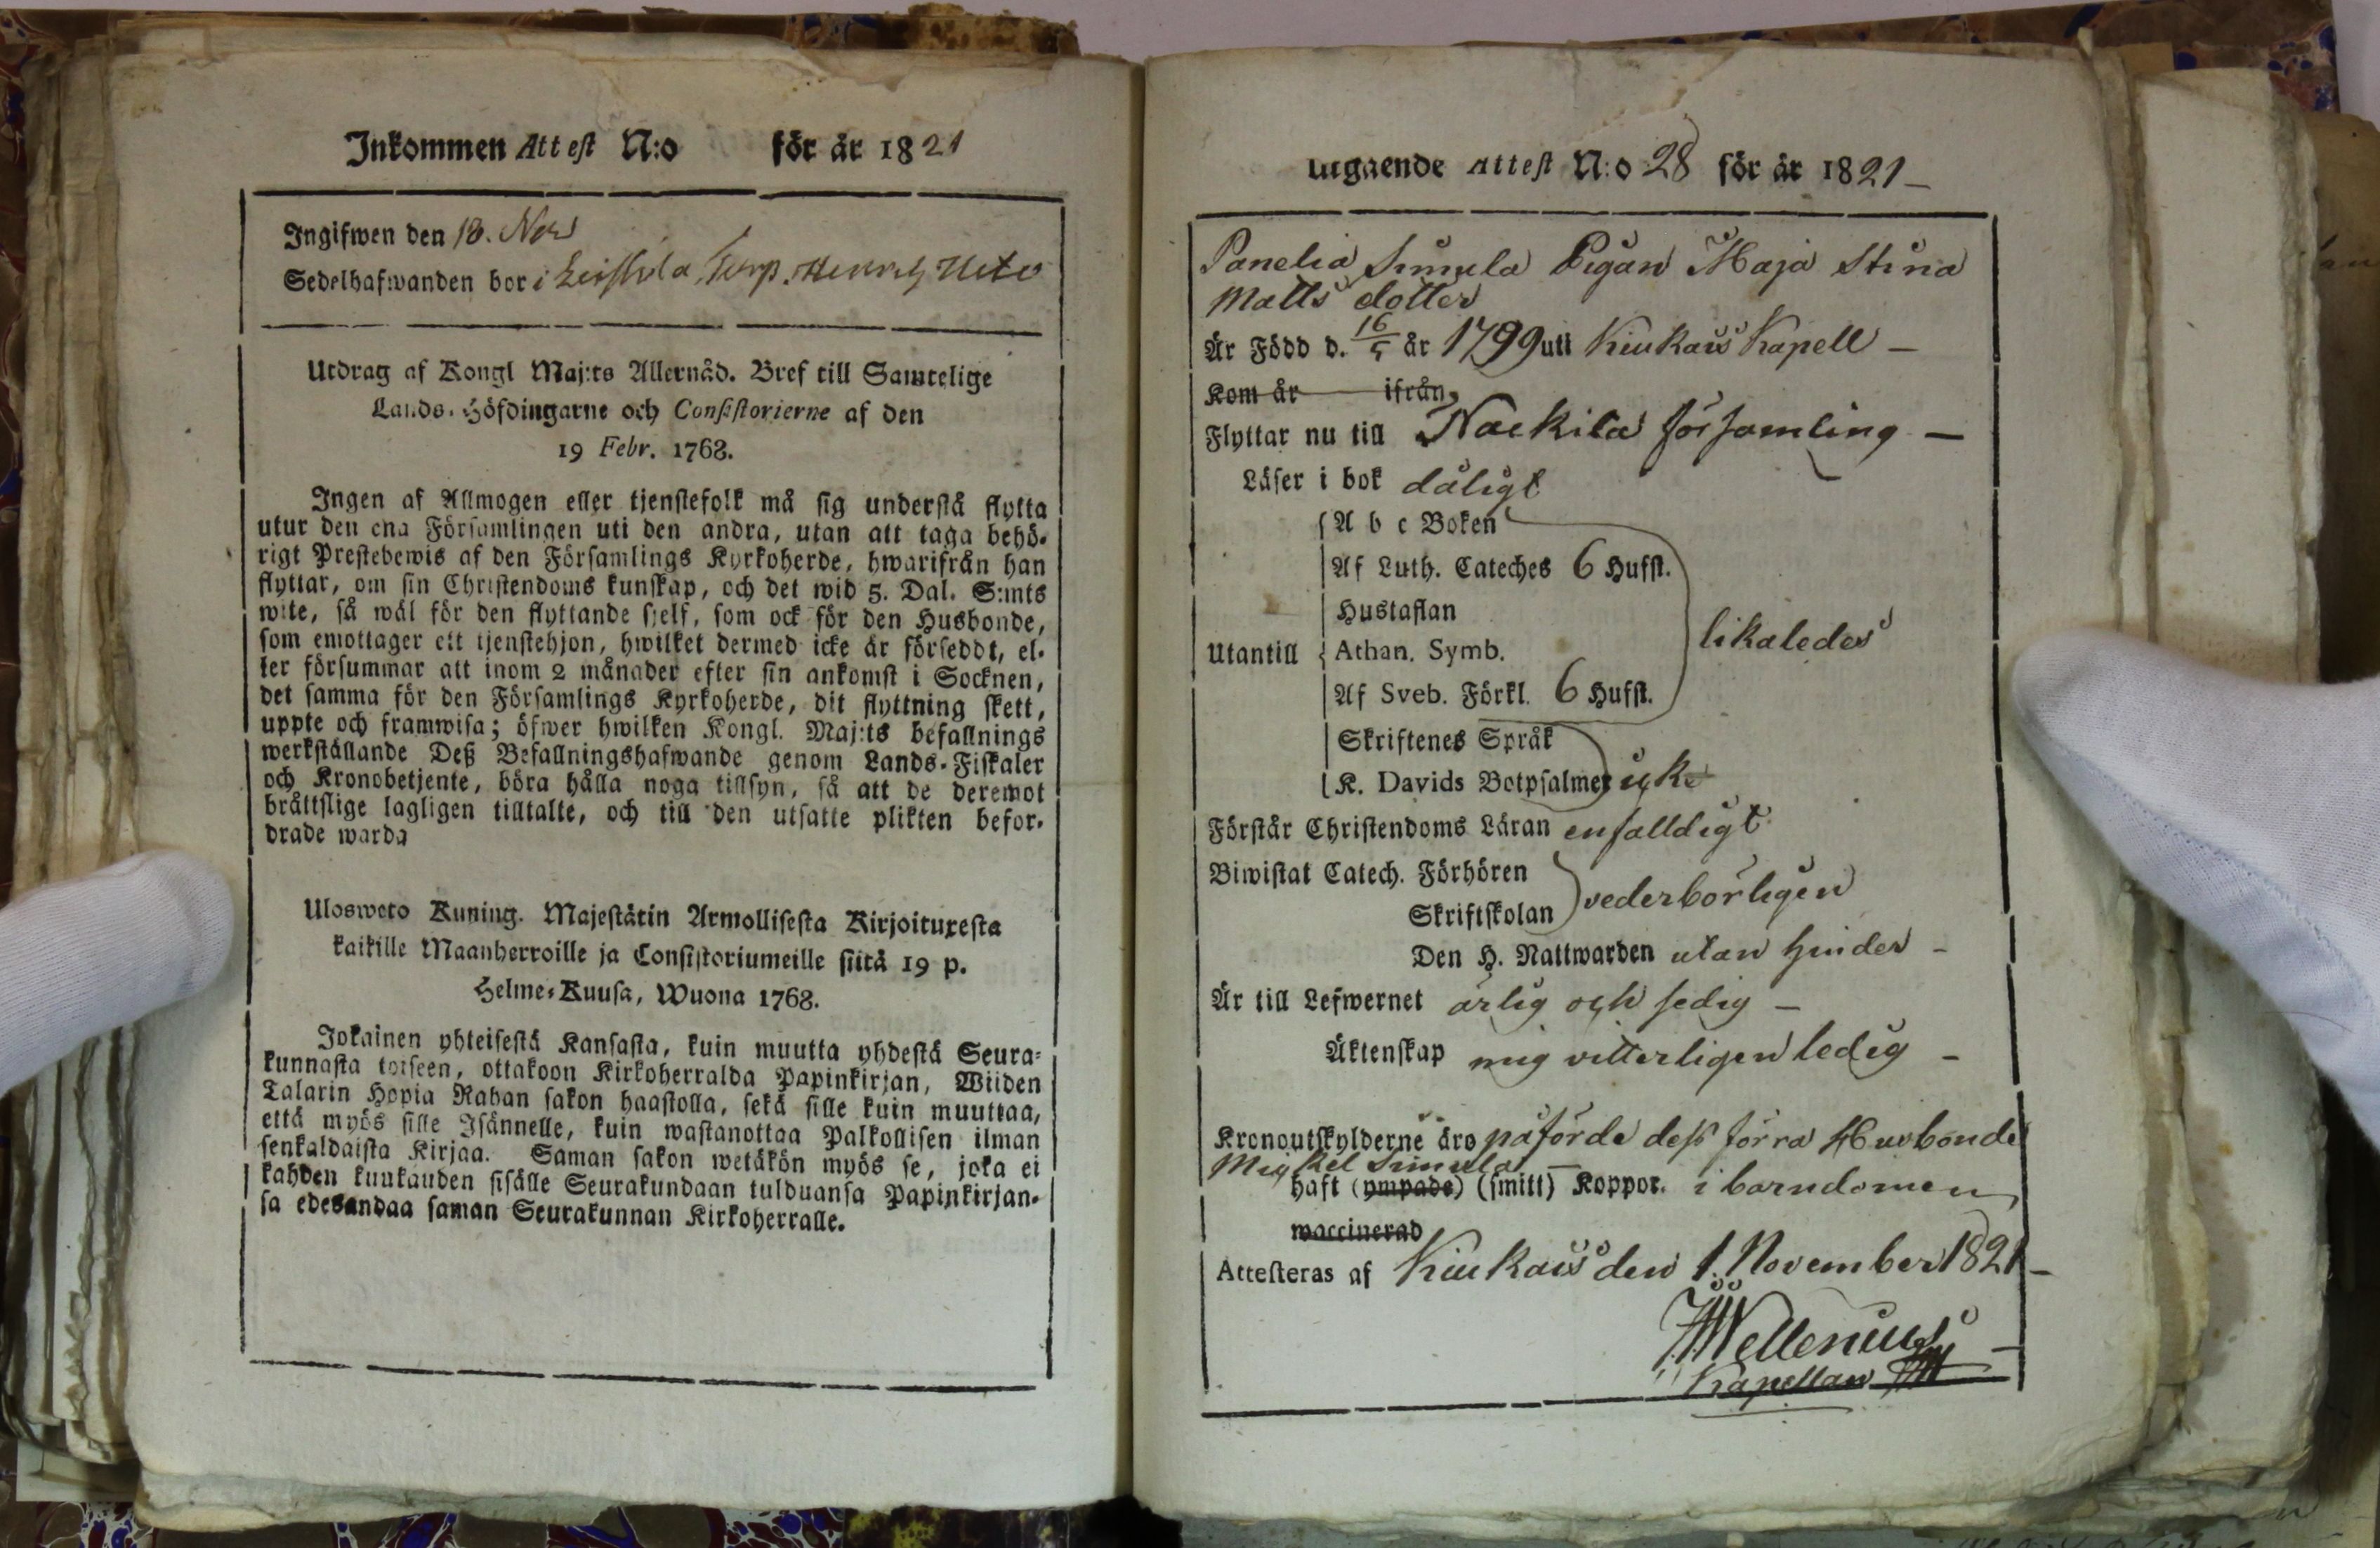 Inkommen Attest N:o för år 1821
Ingifwen den 18. Nov
Sedelhafwanden bor i Leistila Torp. Henrich
Utdrag af Kongl Maj:ts Allernåd. Bref till Samtelige
Lands-Höfdingarne och Consistorierne af den
19 Febr. 1768.
Ingen af Allmogen eller tjenstefolk må sig understå flytta
utur den ena Församlingen uti den andra, utan att taga behö-
rigt Prestebewis af den Församlings Kyrkoherde, hwarifrån han
flyttar, om sin Christendoms kunskap, och det wid 5. Dal. S:mts
wite, så wäl för den flyttande sjelf, som ock för den Husbonde,
som emottager ett tjenstehjon, hwilket dermed icke är förseddt, el-
ler försummar att inom 2 månader efter sin ankomst i Socknen,
det samma för den Församlings Kyrkoherde, dit flyttning skett,
uppte och framwisa; öfwer hwilken Kongl. Maj:ts befallnings
werkställande Deß Befallningshafwande genom Lands-Fiskaler
och Kronobetjente, böra hålla noga tillsyn, så att de deremot
bråttslige lagligen tilltalte, och till den utsatte plikten befor-
drade warda
Ulosweto Kuning. Majestätin Armollisesta Kirjoituxesta
kaikille Maanherroille ja Consistoriumeille siitä 19 p.
Helme-Kuusa, Wuona 1768.
Jokainen yhteisestä Kansasta, kuin muutta yhdestä Seura-
kunnasta toiseen, ottakoon Kirkoherralda Papinkirjan, Wiiden
Talarin Hopia Rahan sakon haastolla, sekä sille kuin muuttaa,
että myös sille Isännelle, kuin wastanottaa Palkollisen ilman
senkaldaista Kirjaa. Saman sakon wetäkön myös se, joka ei
kahden kuukauden sisälle Seurakundaan tulduansa Papinkirjan-
sa edesandaa saman Seurakunnan Kirkoherralle.
Utgående Attest N:o 28 för år 1821 –
Panelia Simula Pigan Maja Stina
Matts dotter
Är Född d. 16/5 år 1799 uti Kiukais Kapell –
Kom år ifrån
Flyttar nu till Nackila församling –
Läser i bok dåligt
A b c Boken
Af Luth. Cateches 6 Hufst.
Hustaflan
Utantill Athan. Symb. likaledes
Af Sveb. Förkl. 6 Hufst.
Skriftenes Språk
K. Davids Botpsalmer icke
Förstår Christendoms Läran enfalldigt
Biwistat Catech. Förhören
Skriftskolan vederbörligen
Den H. Nattwarden utan hinder –
Är till Lefwernet ärlig och sedig –
Äktenskap mig vitterligen ledig –
Kronoutskylderne äro påförde dess förra Husbonde
Michel Simula –
haft (ympade) (smitt) Koppor. i barndomen
waccinerad
Attesteras af Kiukais den 1. November 1821 –
Wellenius
Kapellan